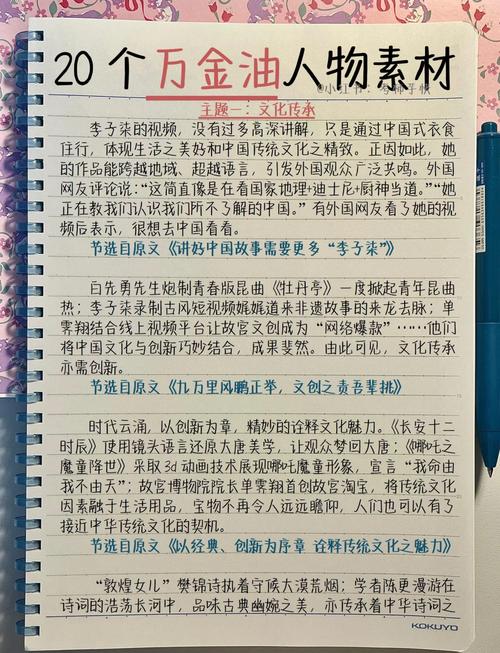 20个万金油人物素材
主题一：文化传承
李子柒的视频，没有过多高深讲解，只是通过中国式衣食
住行，体现生活之美好和中国传统文化之精致。正因如此，她
的作品能跨越地域、超越语言，引发外国观众广泛共鸣。外国
网友评论说：“这简直像是在看国家地理+迪士尼+厨神当道。”“她
正在教我们认识我们所不了解的中国。”有外国网友看了她的视
频后表示，很想去中国看看。
节选自原文《讲好中国故事需要更多“李子柒”》
白先勇先生炮制青春版昆曲《牡丹亭》一度掀起青年昆曲
热；李子柒录制古风短视频娓娓道来非遗故事的来龙去脉；单
霁翔结合线上视频平台让故宫文创成为“网络爆款”……他们
将中国文化与创新巧妙结合，成果斐然。由此可见，文化传承
亦需创新。
节选自原文《九万里风鹏正举，文创之责吾辈挑》
时代云涌，以创新为章，精妙的诠释文化魅力。《长安十二
时辰》使用镜头语言还原大唐美学，让观众梦回大唐；《哪吒之
魔童降世》采取3d动画技术展现哪吒魔童形象，宣言“我命由
我不由天”；故宫博物院院长单霁翔首创故宫淘宝，将传统文化
因素融于生活用品，宝物不再令人远远瞻仰，人们也可以有了
接近中华传统文化的契机。
节选自原文《以经典、创新为序章 诠释传统文化之魅力》
“敦煌女儿”樊锦诗执着守候大漠荒烟；学者陈更漫游在
诗词的浩荡长河中，品味古典幽婉之美，亦传承着中华诗词之
KOKUYO